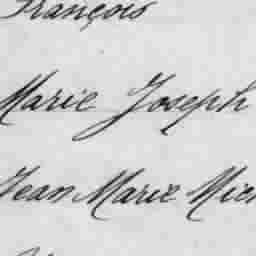 François
Marie Joseph
Jean Marie